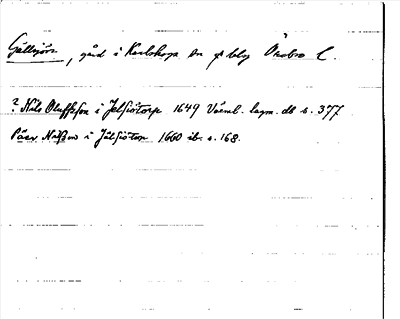 Gällsjön, gård i Karlskoga sn Örebro l.
? Nils Oluffsson i Jelsiötorp 1649 Värml. lagm. db s. 377
Päer Nilsson i Jälsiötorp 1660 ib. s. 168.